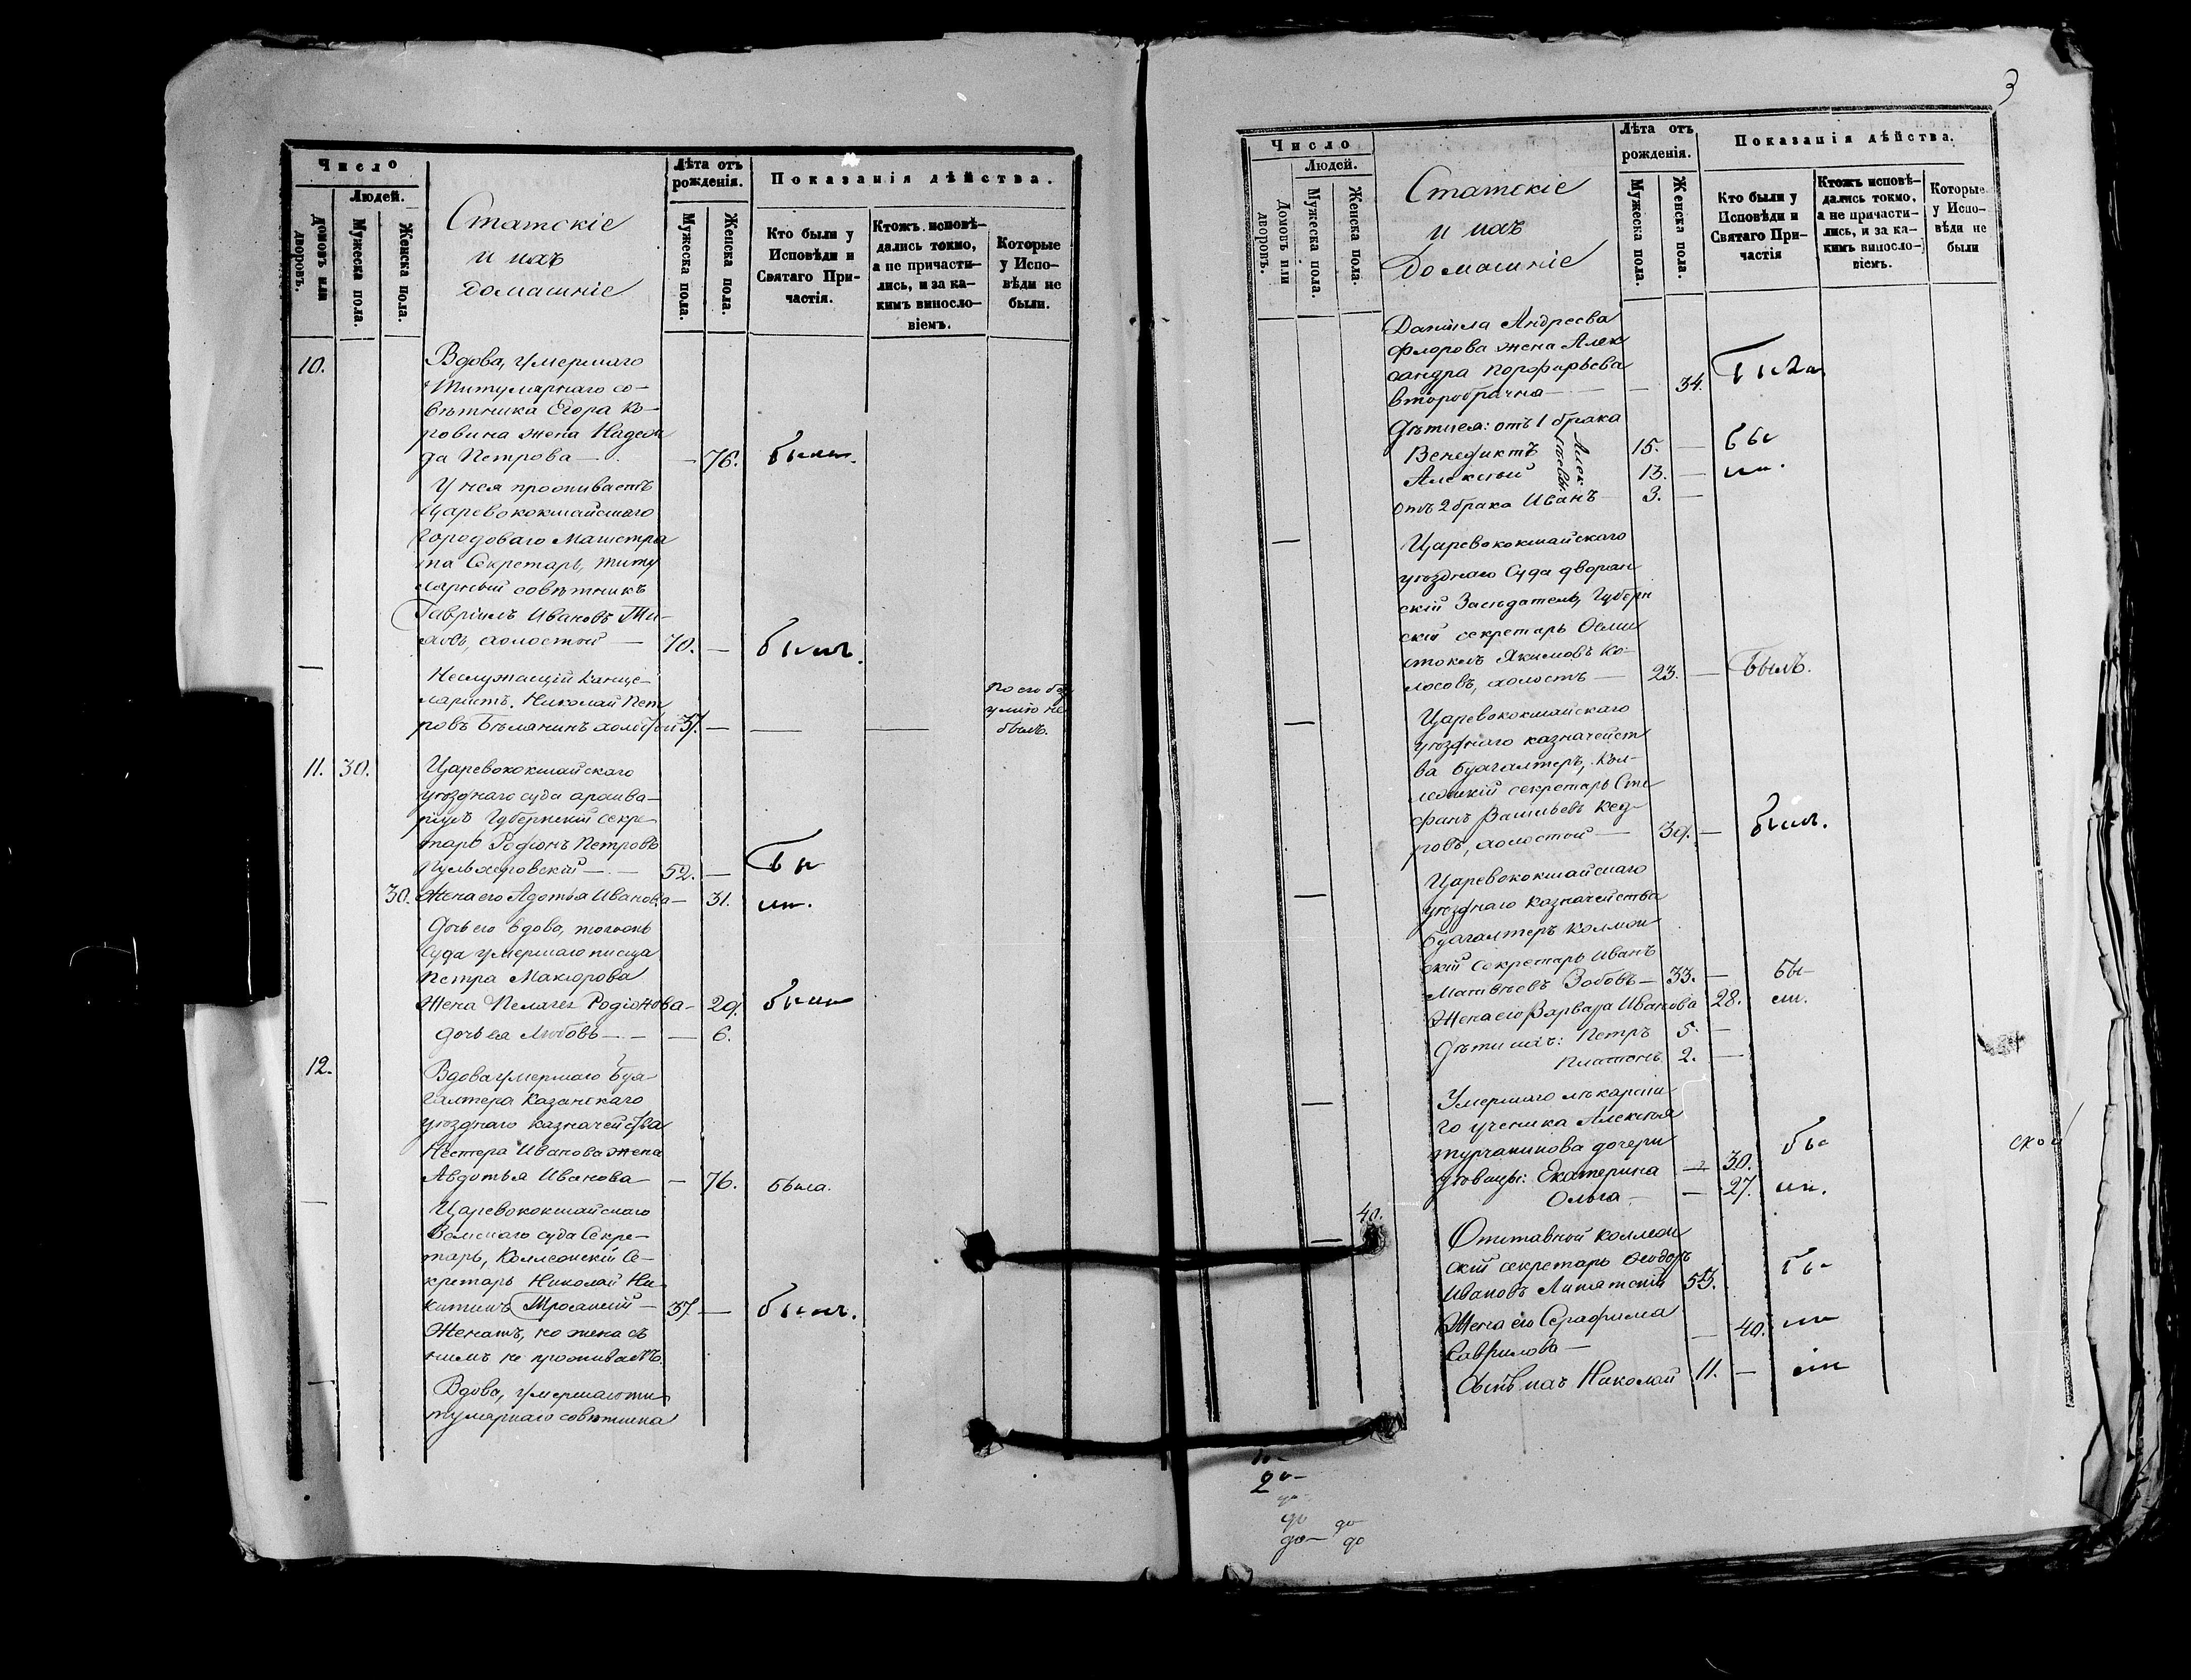 Число
Людей.
Домовъ или дворовъ.
Мужеска пола.
Женска пола.
Статскіе
и ихъ
домашніе
Лѣта отъ
рожденія.
Мужеска пола.
Женска пола.
Показанія дѣйства.
Кто были у
Исповѣди и
Святаго При-
частія.
Ктожъ исповѣ-
дались токмо,
а не причасти-
лись, и за ка-
кимъ виносло-
віемъ.
Которые
у Испо-
вѣди не
были.
10. Вдова, умершаго
Титулярнаго со-
вѣтника Егора Ко-
ровина жена Надеж
да Петрова — — 76. была.
У нея проживаетъ
Царевококшайскаго
городоваго Магистра
та Секретарь, титу
лярный совѣтникъ
Гавріилъ Ивановъ Ти-
ховъ, холостой — 70. — былъ.
— Неслужащій канце-
ляристъ Николай Пет
ровъ Бѣлянинъ холостой 37. — — —
по его без
умію не
былъ.
11. 30. Царевококшайскаго
уѣзднаго суда архива-
ріусъ Губернскій секре
тарь Родіонъ Петровъ
Пульхеровскій — 52. — Бы
30. Жена его Авдотья Иванова — 31. ли.
Дочь его вдова, тогожъ
суда умершаго писца
Петра Макарова
Жена Пелагея Родіонова — 29. была
дочь ея Любовь — — 6.
12. Вдова умершаго Бух
галтера Казанскаго
уѣзднаго казначейства
Нестера Иванова жена
Авдотья Иванова — — 76. была.
— Царевококшайскаго
Земскаго суда Секре-
тарь, Коллежскій Се-
кретарь Николай Ни-
китинъ Троянскій — 37. — былъ.
Женатъ, но жена съ
нимъ не проживаетъ.
— Вдова, умершаго ти
тулярнаго совѣтника
3
Число
Людей.
Домовъ или дворовъ.
Мужеска пола.
Женска пола.
Статскіе
и ихъ
Домашніе
Лѣта отъ
рожденія.
Мужеска пола.
Женска пола.
Показанія дѣйства.
Кто были у
Исповѣди и
Святаго При-
частія
Ктожъ исповѣ-
дались токмо,
а не причасти-
лись, и за ка-
кимъ виносло-
віемъ.
Которые
у Испо-
вѣди не
были
Даніила Андреева
Флорова жена Алек
сандра Порфирьева
второбрачна — — 34. Была
Дѣти ея: отъ 1 брака
Венедиктъ 15. — Бы
Алексѣй 13. — ли.
Алек
сѣевы.
отъ 2 брака Иванъ 3. —
— Царевококшайскаго
уѣзднаго Суда дворян
скій Засѣдатель, Губерн
скій секретарь Ѳеми
стоклъ Якимовъ Ко-
лосовъ, холостъ — 23. — Былъ.
— Царевококшайскаго
уѣзднаго казначейст
ва бухгалтеръ, Кол-
лежскій секретарь Сте
фанъ Васильевъ Кед-
ровъ, холостой — 39. — былъ.
— Царевококшайскаго
уѣзднаго казначейства
бухгалтеръ Коллеж
скій Секретарь Иванъ
Матвѣевъ Зобовъ — 33. — Бы-
Жена его Варвара Иванова 28. ли.
Дѣти ихъ: Петръ 5. —
Платонъ 2. —
— Умершаго лѣкарска
го ученика Алексѣя
Турчанинова дочери
дѣвицы: Екатерина — 30. Бы-
Ольга — — 27. ли.
40.
— Отставной коллеж
скій секретарь Ѳеодоръ
Ивановъ Липятскій 53. бы-
Жена его Серафима
Гаврилова — — 40. ли
Сынъ ихъ Николай 11. — ли
ской
2
до до
до— до